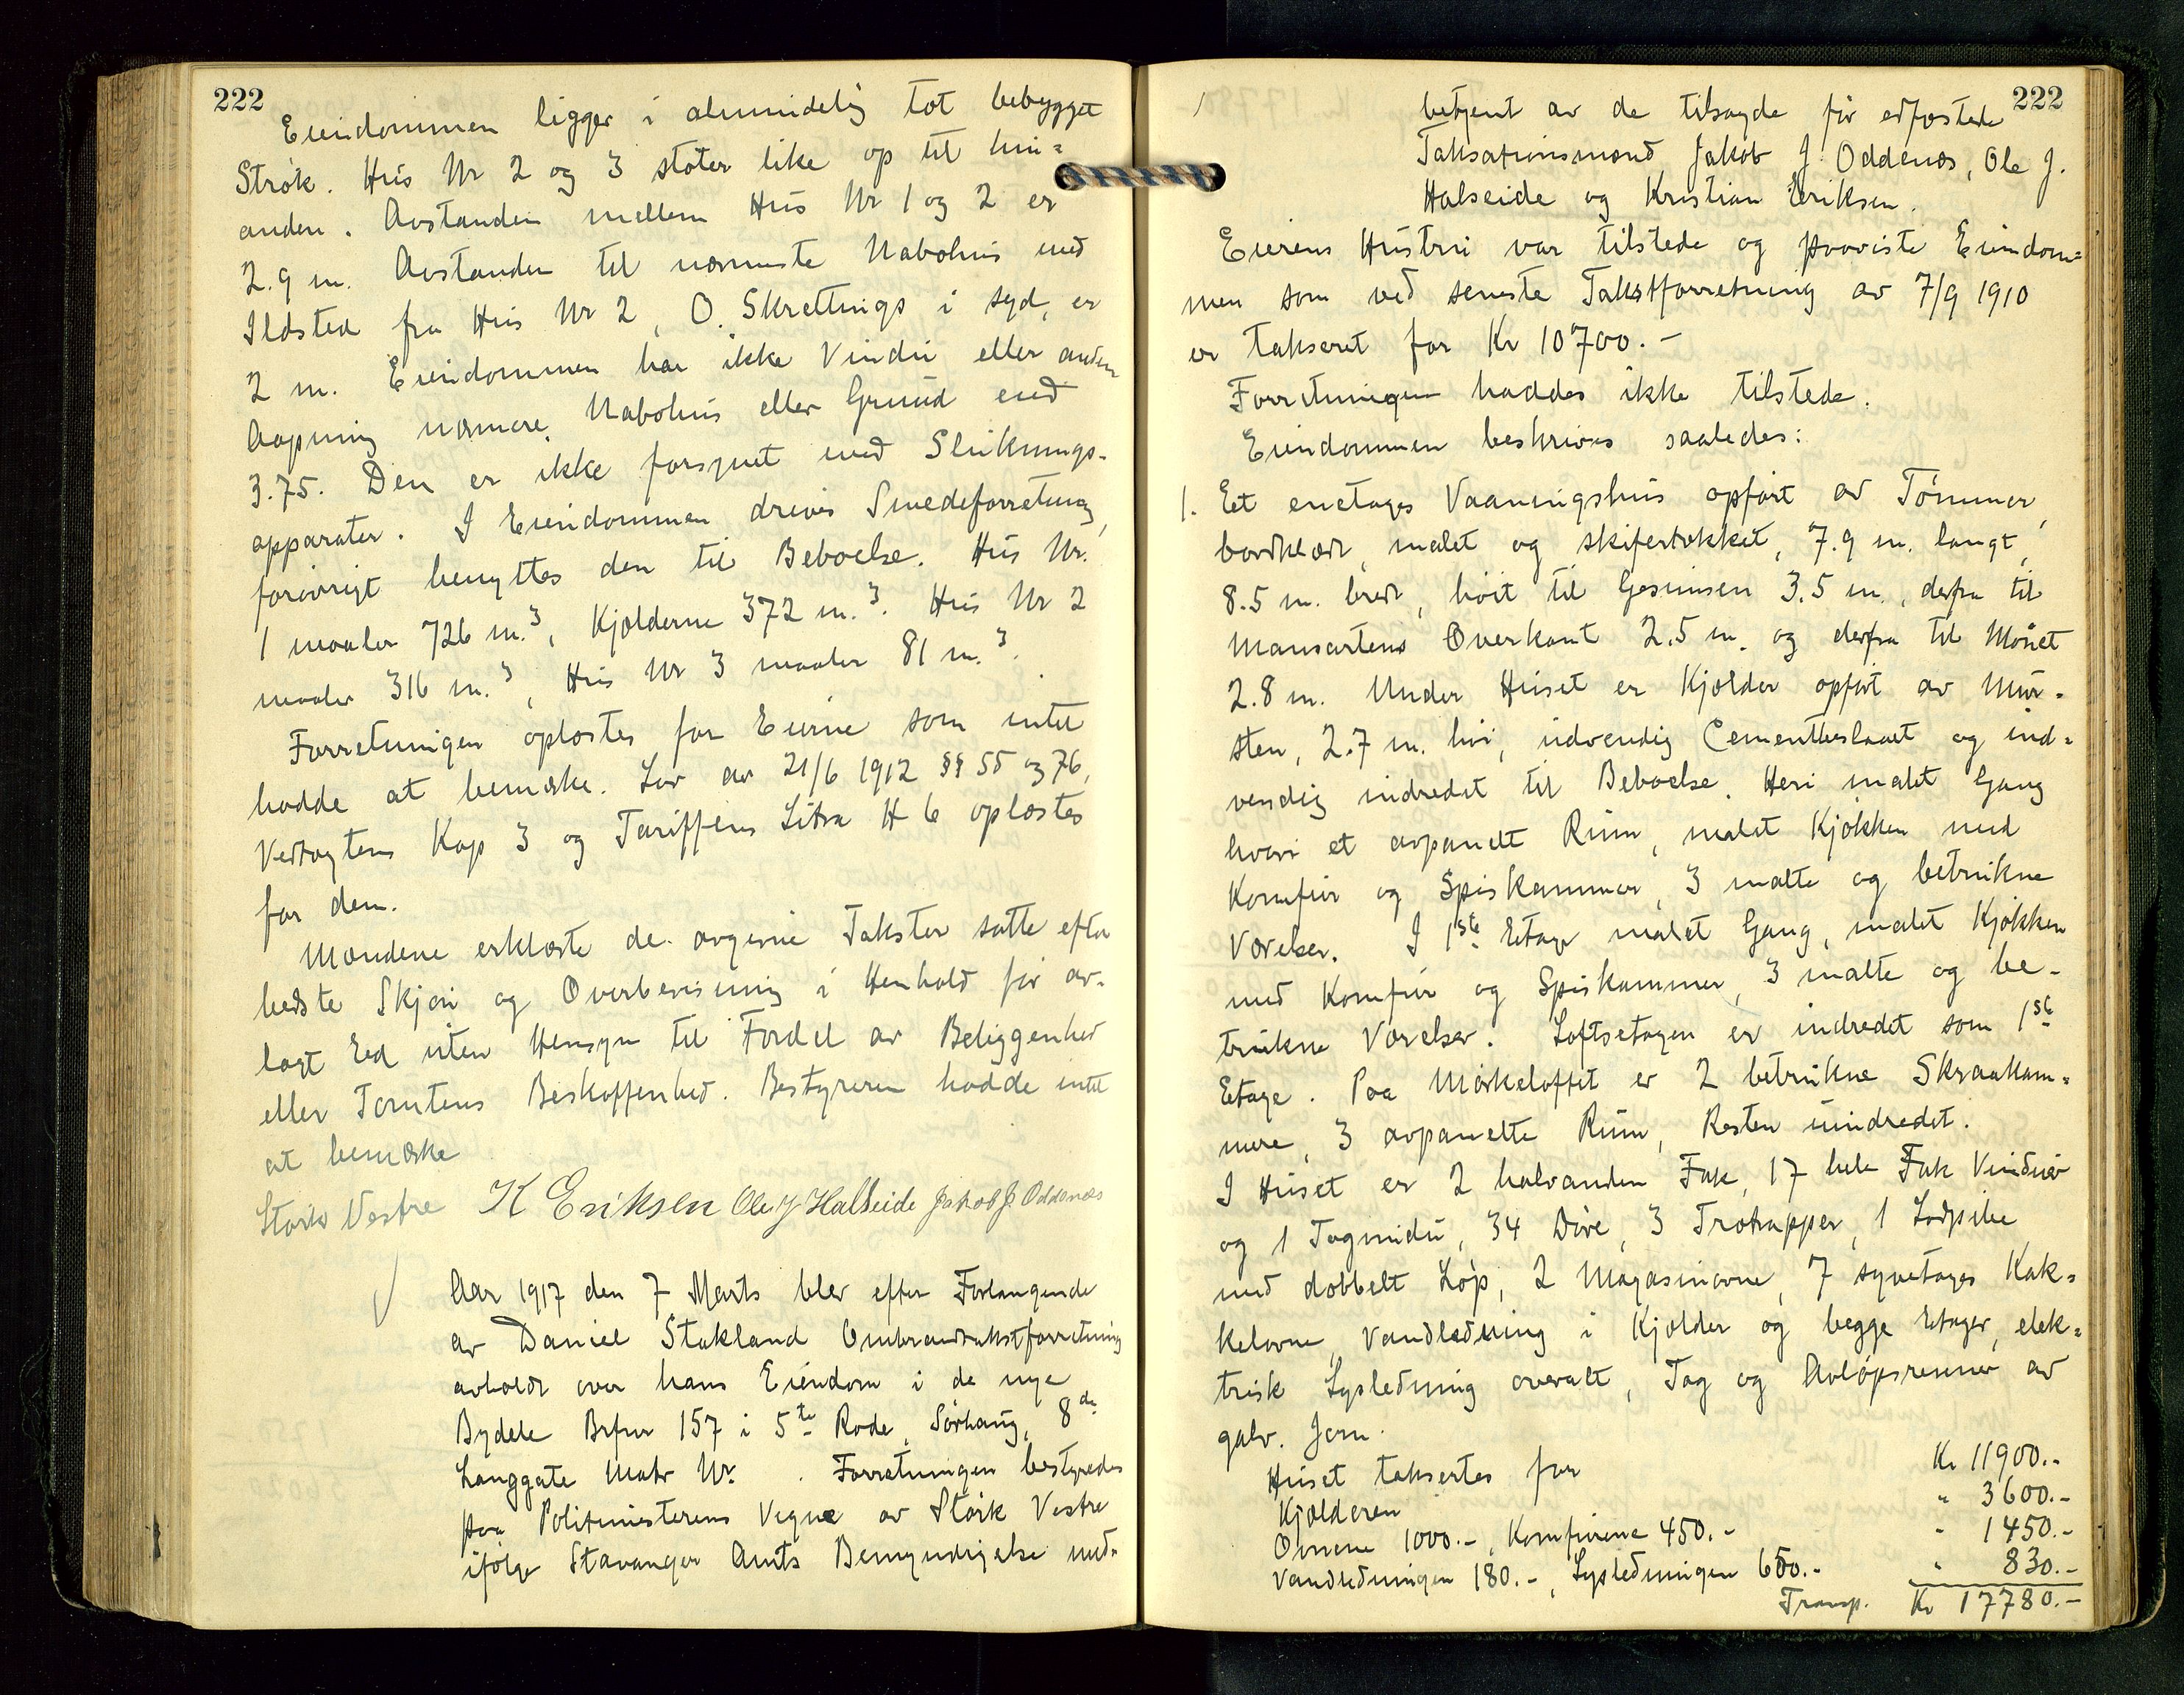 222
Eiendommen ligger i almindelig tæt bebygget
Strøk. Hus Nr 2 og 3 støter like op til hin=
anden. Avstanden mellem Hus Nr 1 og 2 er
2.9 m. Avstanden til nærmeste Nabohus med
Ildsted fra Hus Nr 2, O. Skrettings i syd, er
2 m. Eiendommen har ikke Vindu eller anden
Aapning nærmere Nabohus eller Grund end
3.75. Den er ikke forsynet med Sluknings-
apparater. I Eiendommen drives Smedeforretning,
forøvrigt benyttes den til Beboelse. Hus Nr.
1 maaler 726 m.³, Kjælderne 372 m.³. Hus Nr 2
maaler 316 m.³, Hus Nr 3 maaler 81 m.³.
Forretningen oplæstes for Eierne som intet
hadde at bemerke. Lov av 21/6 1912 §§ 55 og 76,
Vedtægtens Kap 3 og Tariffens Litra H 6 oplæstes
for dem.
Mændene erklærte de avgivne Takster satte efter
bedste Skjøn og Overbevisning i Henhold før av-
lagt Ed uten Hensyn til Fordel av Beliggenhed
eller Tomtens Beskaffenhed. Bestyreren hadde intet
at bemærke
Stark Vestre K Eriksen Ole J Halseide Jakob J. Oddenæs
Aar 1917 den 7 Marts blev efter Forlangende
av Daniel Stakland Ombrandtakstforretning
avholdt over hans Eiendom i de nye
Bydele Brfnr 157 i 5te Rode, Sørhaug, 8de
Langgate Matr Nr. . Forretningen bestyredes
paa Politimesterens Vegne av Stark Vestre
ifølge Stavanger Amts Bemyndigelse med-
222
betjent av de tilsagde før edfæstede
Taksationsmænd Jakob J. Oddenæs, Ole J.
Halseide og Kristian Eriksen.
Eierens Hustru var tilstede og paaviste Eiendom=
men som ved seneste Takstforretning av 7/9 1910
er takseret for Kr 10700.-
Forretningen haddes ikke tilstede.
Eiendommen beskrives saaledes:
1. Et enetages Vaaningshus opført av Tømmer,
bordklædt, malet og skifertækket, 7.9 m. langt,
8.5 m. bredt, høit til Gesimsen 3.5 m., derfra til
Mansartens Overkant 2.5 m. og derfra til Mønet
2.8 m. Under Huset er Kjælder opført av Mur-
sten, 2.7 m. høi, udvendig Cementbeslaaet og ind=
vendig indredet til Beboelse. Heri malet Gang
hvori et avpanelt Rum, malet Kjøkken med
Komfur og Spiskammer, 3 malte og betrukne
Værelser. I 1ste Etage malet Gang, malet Kjøkken
med Komfur og Spiskammer, 3 malte og be-
trukne Værelser. Loftsetagen er indredet som 1ste
Etage. Paa Mørkeloftet er 2 betrukne Skraakam=
mere, 3 avpanelte Rum, Resten uindredet.
I Huset er 2 halvanden Fak, 17 hele Fak Vinduer
og 1 Tagvindu, 34 Døre, 3 Trætrapper, 1 Lodpibe
med dobbelt Løp, 2 Magasinovne, 7 syvetages Kak=
kelovne, Vandledning i Kjælder og begge Etager, elek=
trisk Lysledning overalt, Tag og Avløpsrenner av
galv. Jern.
Huset taksertes for Kr 11900.-
Kjælderen " 3600.-
Ovnene 1000.-, Komfurene 450.- " 1450.-
Vandledningen 180.-, Lysledningen 650.- " 830.-
Transp. Kr 17780.-